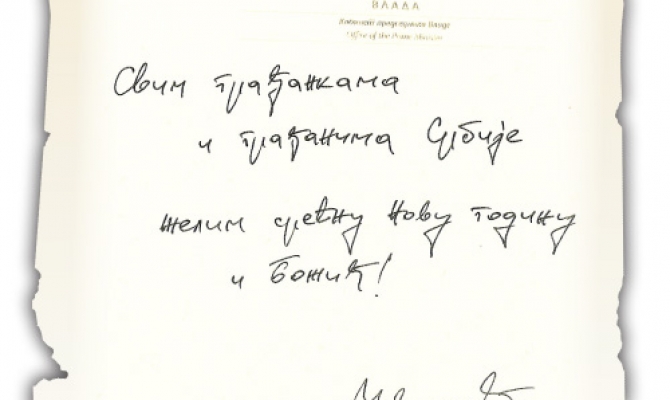 ВЛАДА
Кабинет председника Владе
Office of the Prime Minister
Свим грађанкама
и грађанима Србије
желим срећну Нову годину
и Божић!